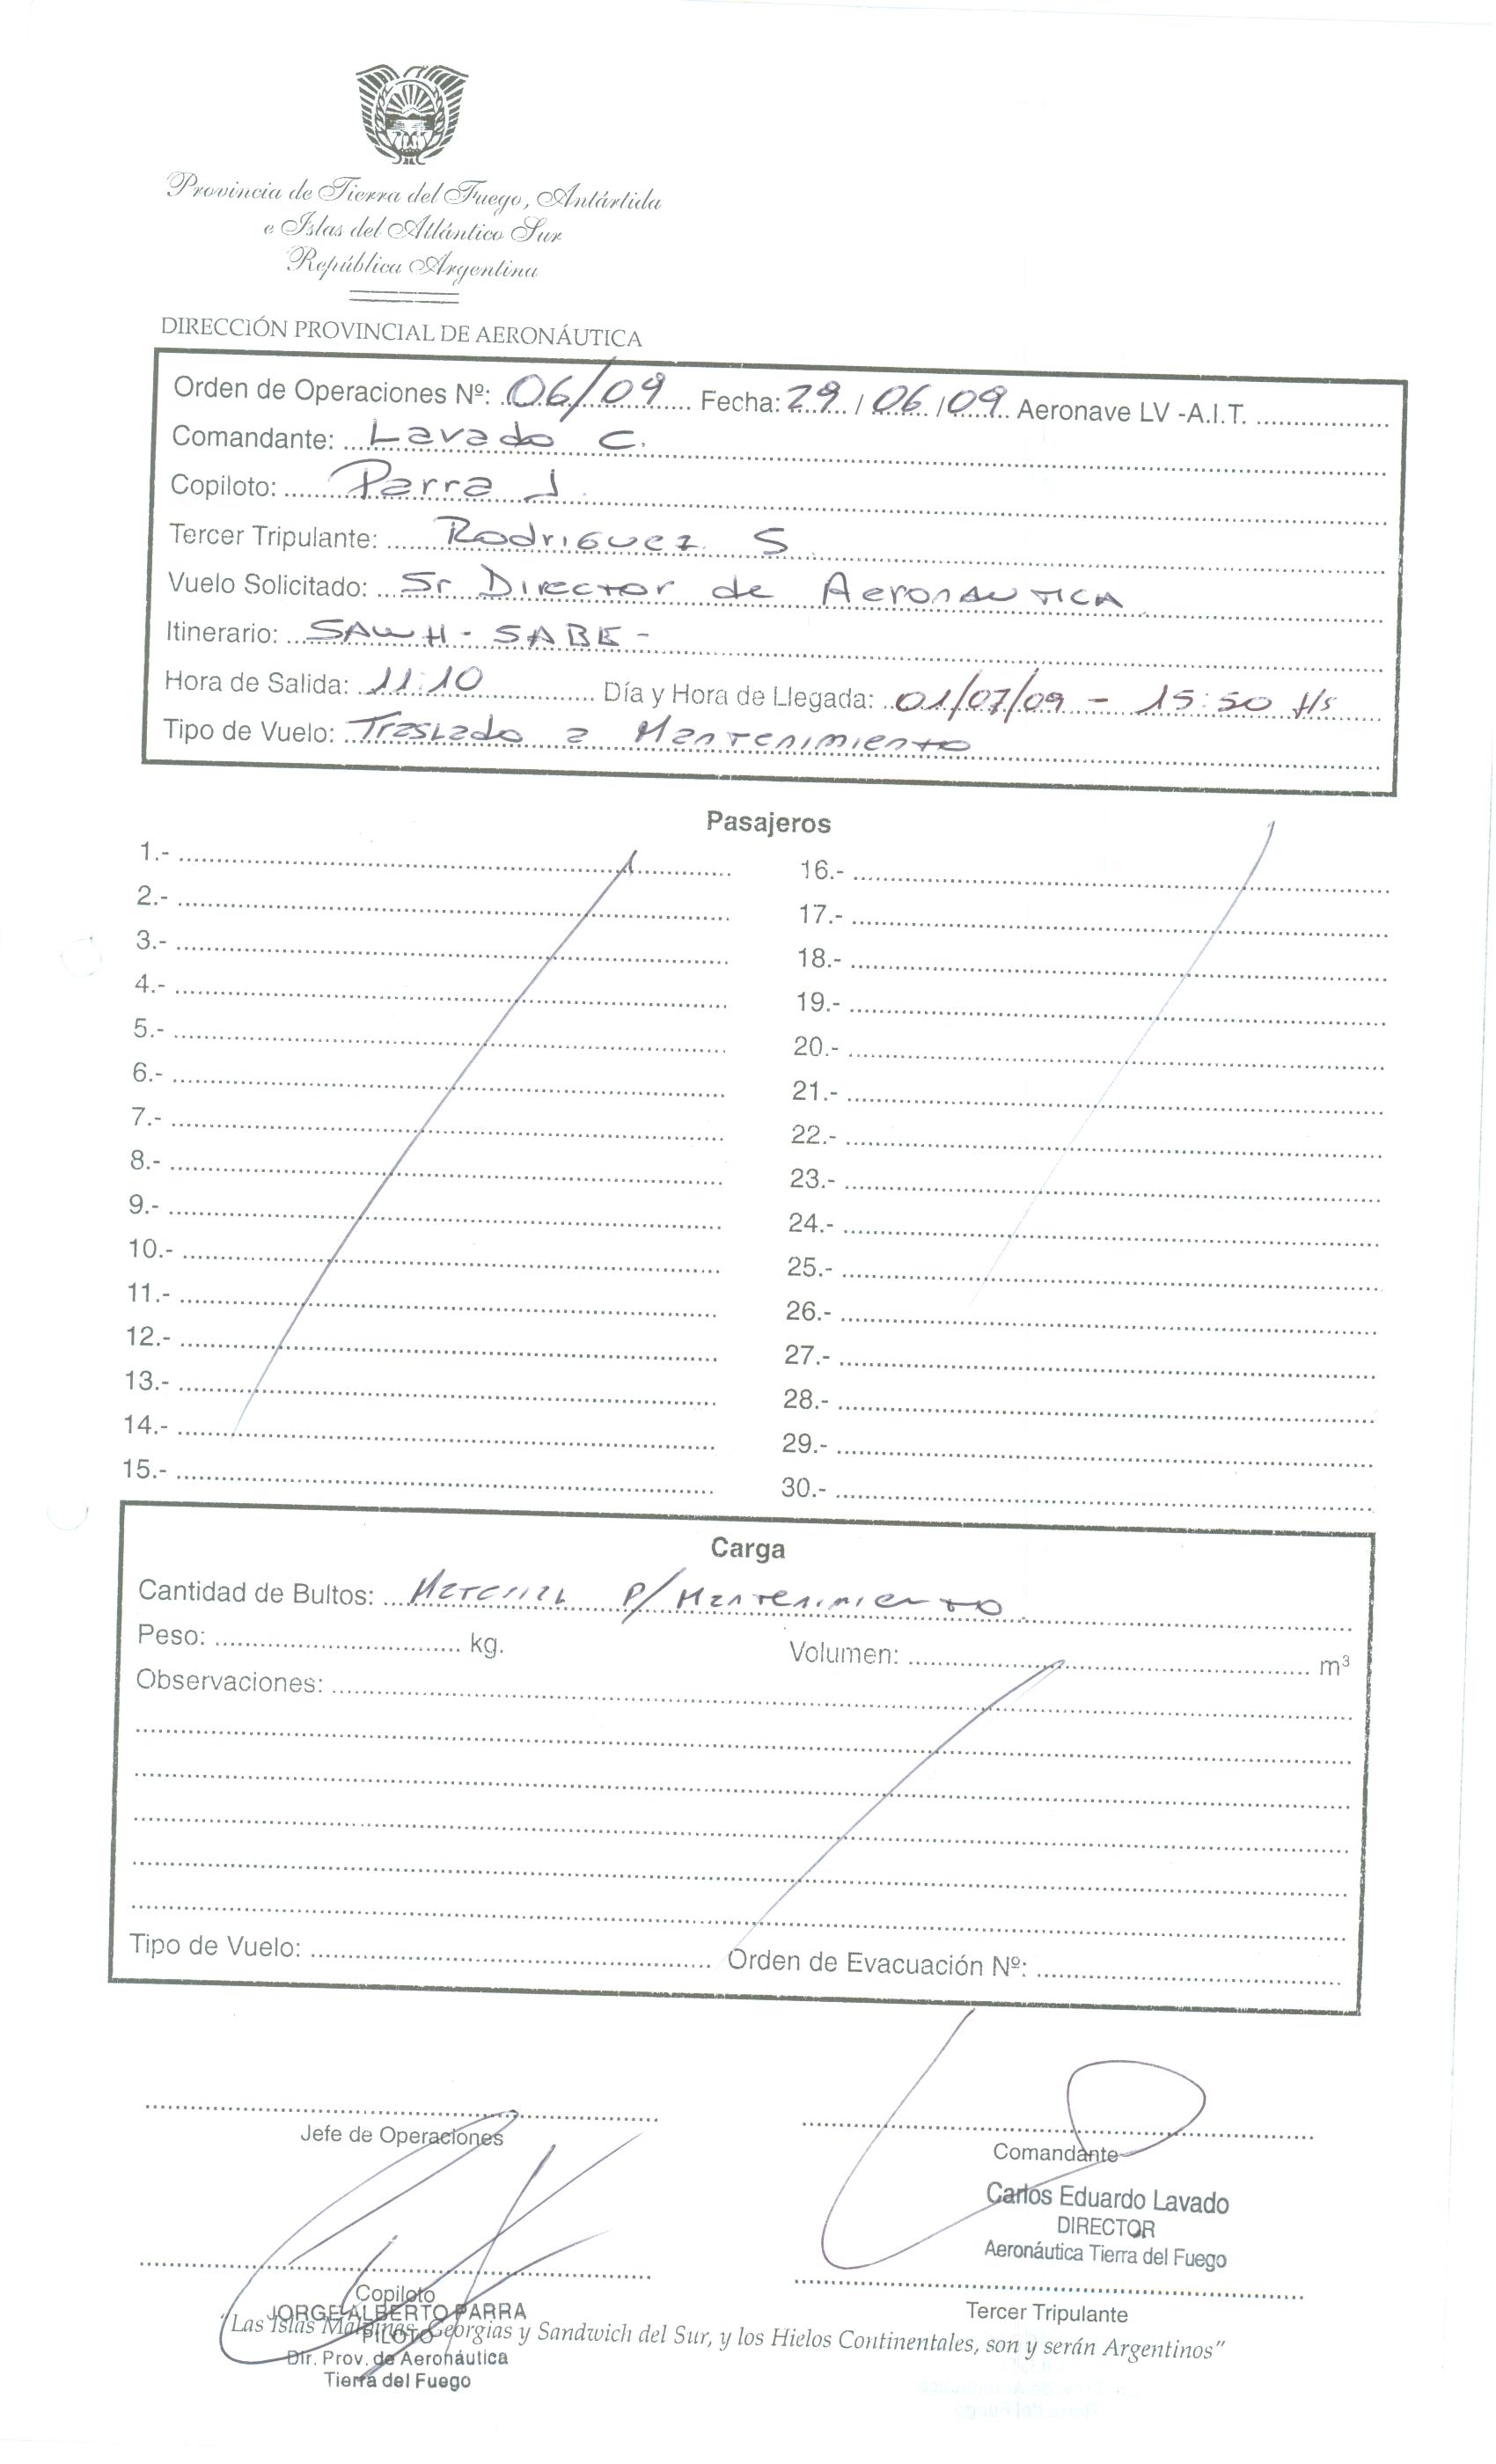 Provincia de Tierra del Fuego, Antártida
e Islas del Atlántico Sur
República Argentina
DIRECCIÓN PROVINCIAL DE AERONÁUTICA
Orden de Operaciones Nº: 06/09 Fecha: 29 / 06 / 09 Aeronave LV -A.I.T.
Comandante: Lavado C.
Copiloto: Parra J
Tercer Tripulante: Rodriguez S
Vuelo Solicitado: Sr Director de Aeronautica
Itinerario: SAWH - SABE -
Hora de Salida: 11:10 Día y Hora de Llegada: 01/07/09 - 15:50 Hs
Tipo de Vuelo: Traslado a Mantenimiento
Pasajeros
1.-
2.-
3.-
4.-
5.-
6.-
7.-
8.-
9.-
10.-
11.-
12.-
13.-
14.-
15.-
16.-
17.-
18.-
19.-
20.-
21.-
22.-
23.-
24.-
25.-
26.-
27.-
28.-
29.-
30.-
Carga
Cantidad de Bultos: Material p/ Mantenimiento
Peso: kg. Volumen: m³
Observaciones:
Tipo de Vuelo: Orden de Evacuación Nº:
Jefe de Operaciones
Comandante
Carlos Eduardo Lavado
DIRECTOR
Aeronáutica Tierra del Fuego
Copiloto
JORGE ALBERTO PARRA
PILOTO
Dir. Prov. de Aeronáutica
Tierra del Fuego
Tercer Tripulante
"Las Islas Malvinas, Georgias y Sandwich del Sur, y los Hielos Continentales, son y serán Argentinos"